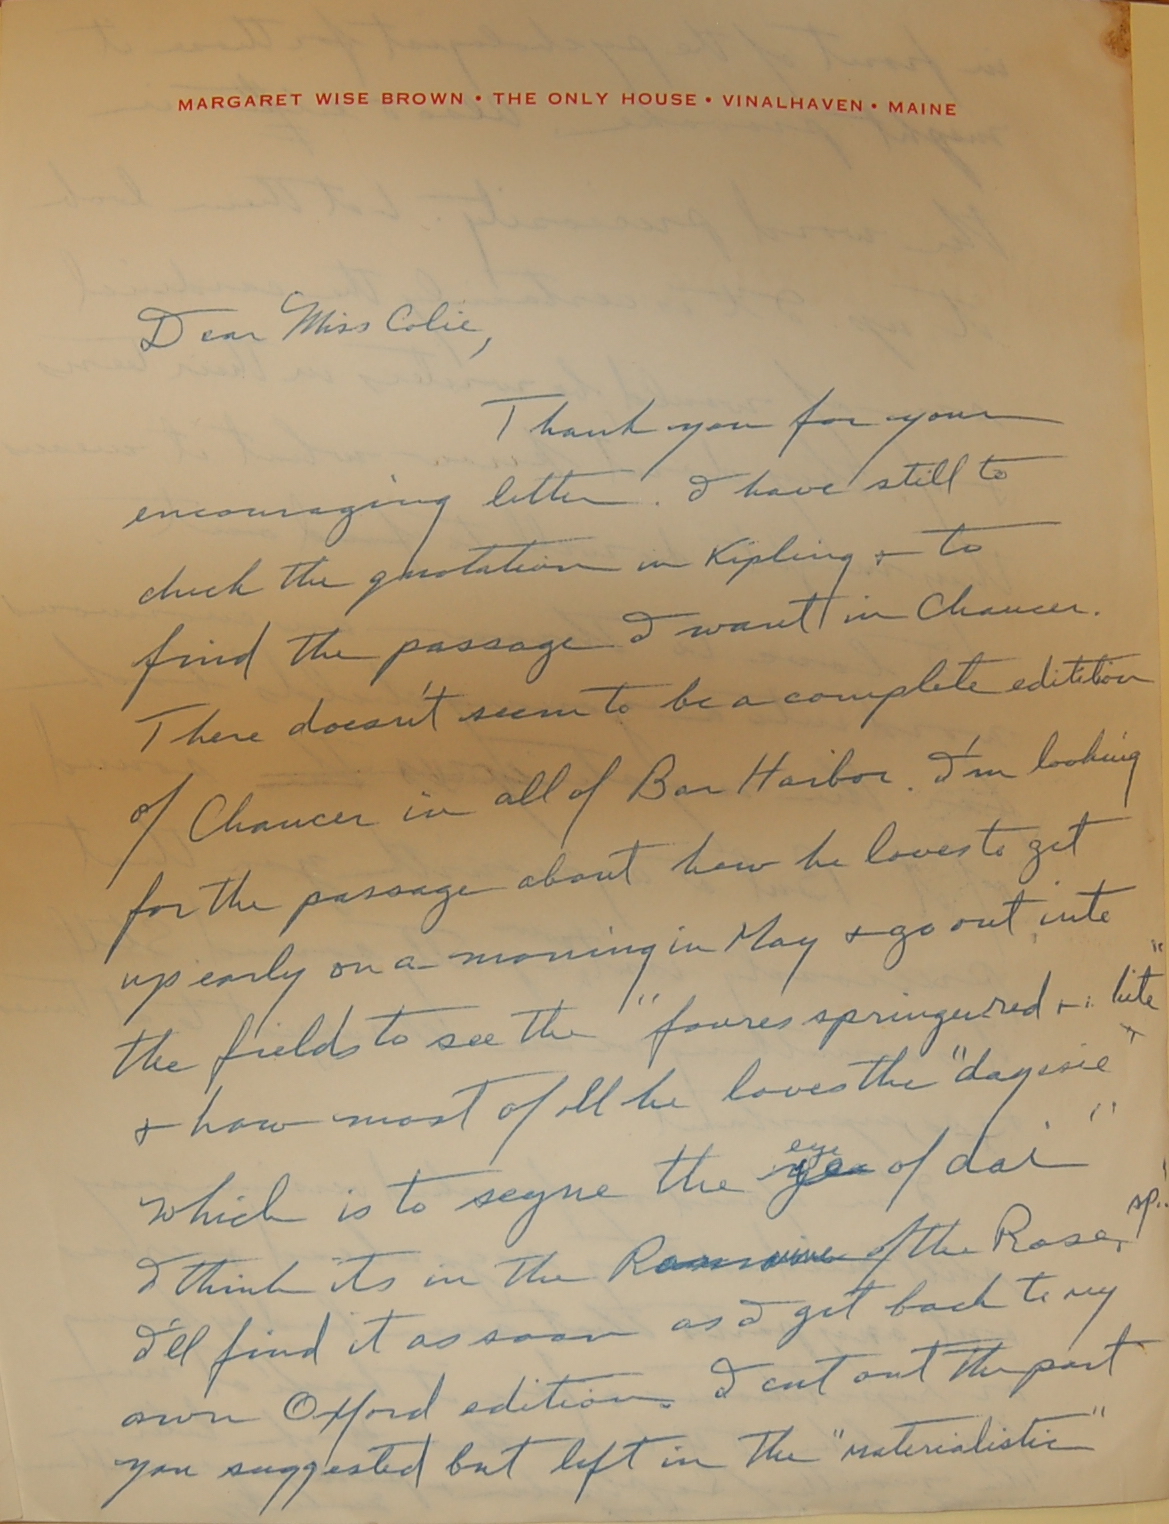 MARGARET WISE BROWN • THE ONLY HOUSE • VINALHAVEN • MAINE
Dear Miss Colie,
Thank you for your
encouraging letter. I have still to
check the quotation in Kipling & to
find the passage I want in Chaucer.
There doesn't seem to be a complete editition
of Chaucer in all of Bar Harbor. I'm looking
for the passage about how he loves to get
up early on a morning in May & go out into
the fields to see the "foures springe red &
& how most of all he loves the "dayesie"
which is to seyne the eye of dai"
I think its in the of the Rose, sp.
I'll find it as soon as I get back to my
own Oxford edition. I cut out the part
you suggested but left in the "materialistic"